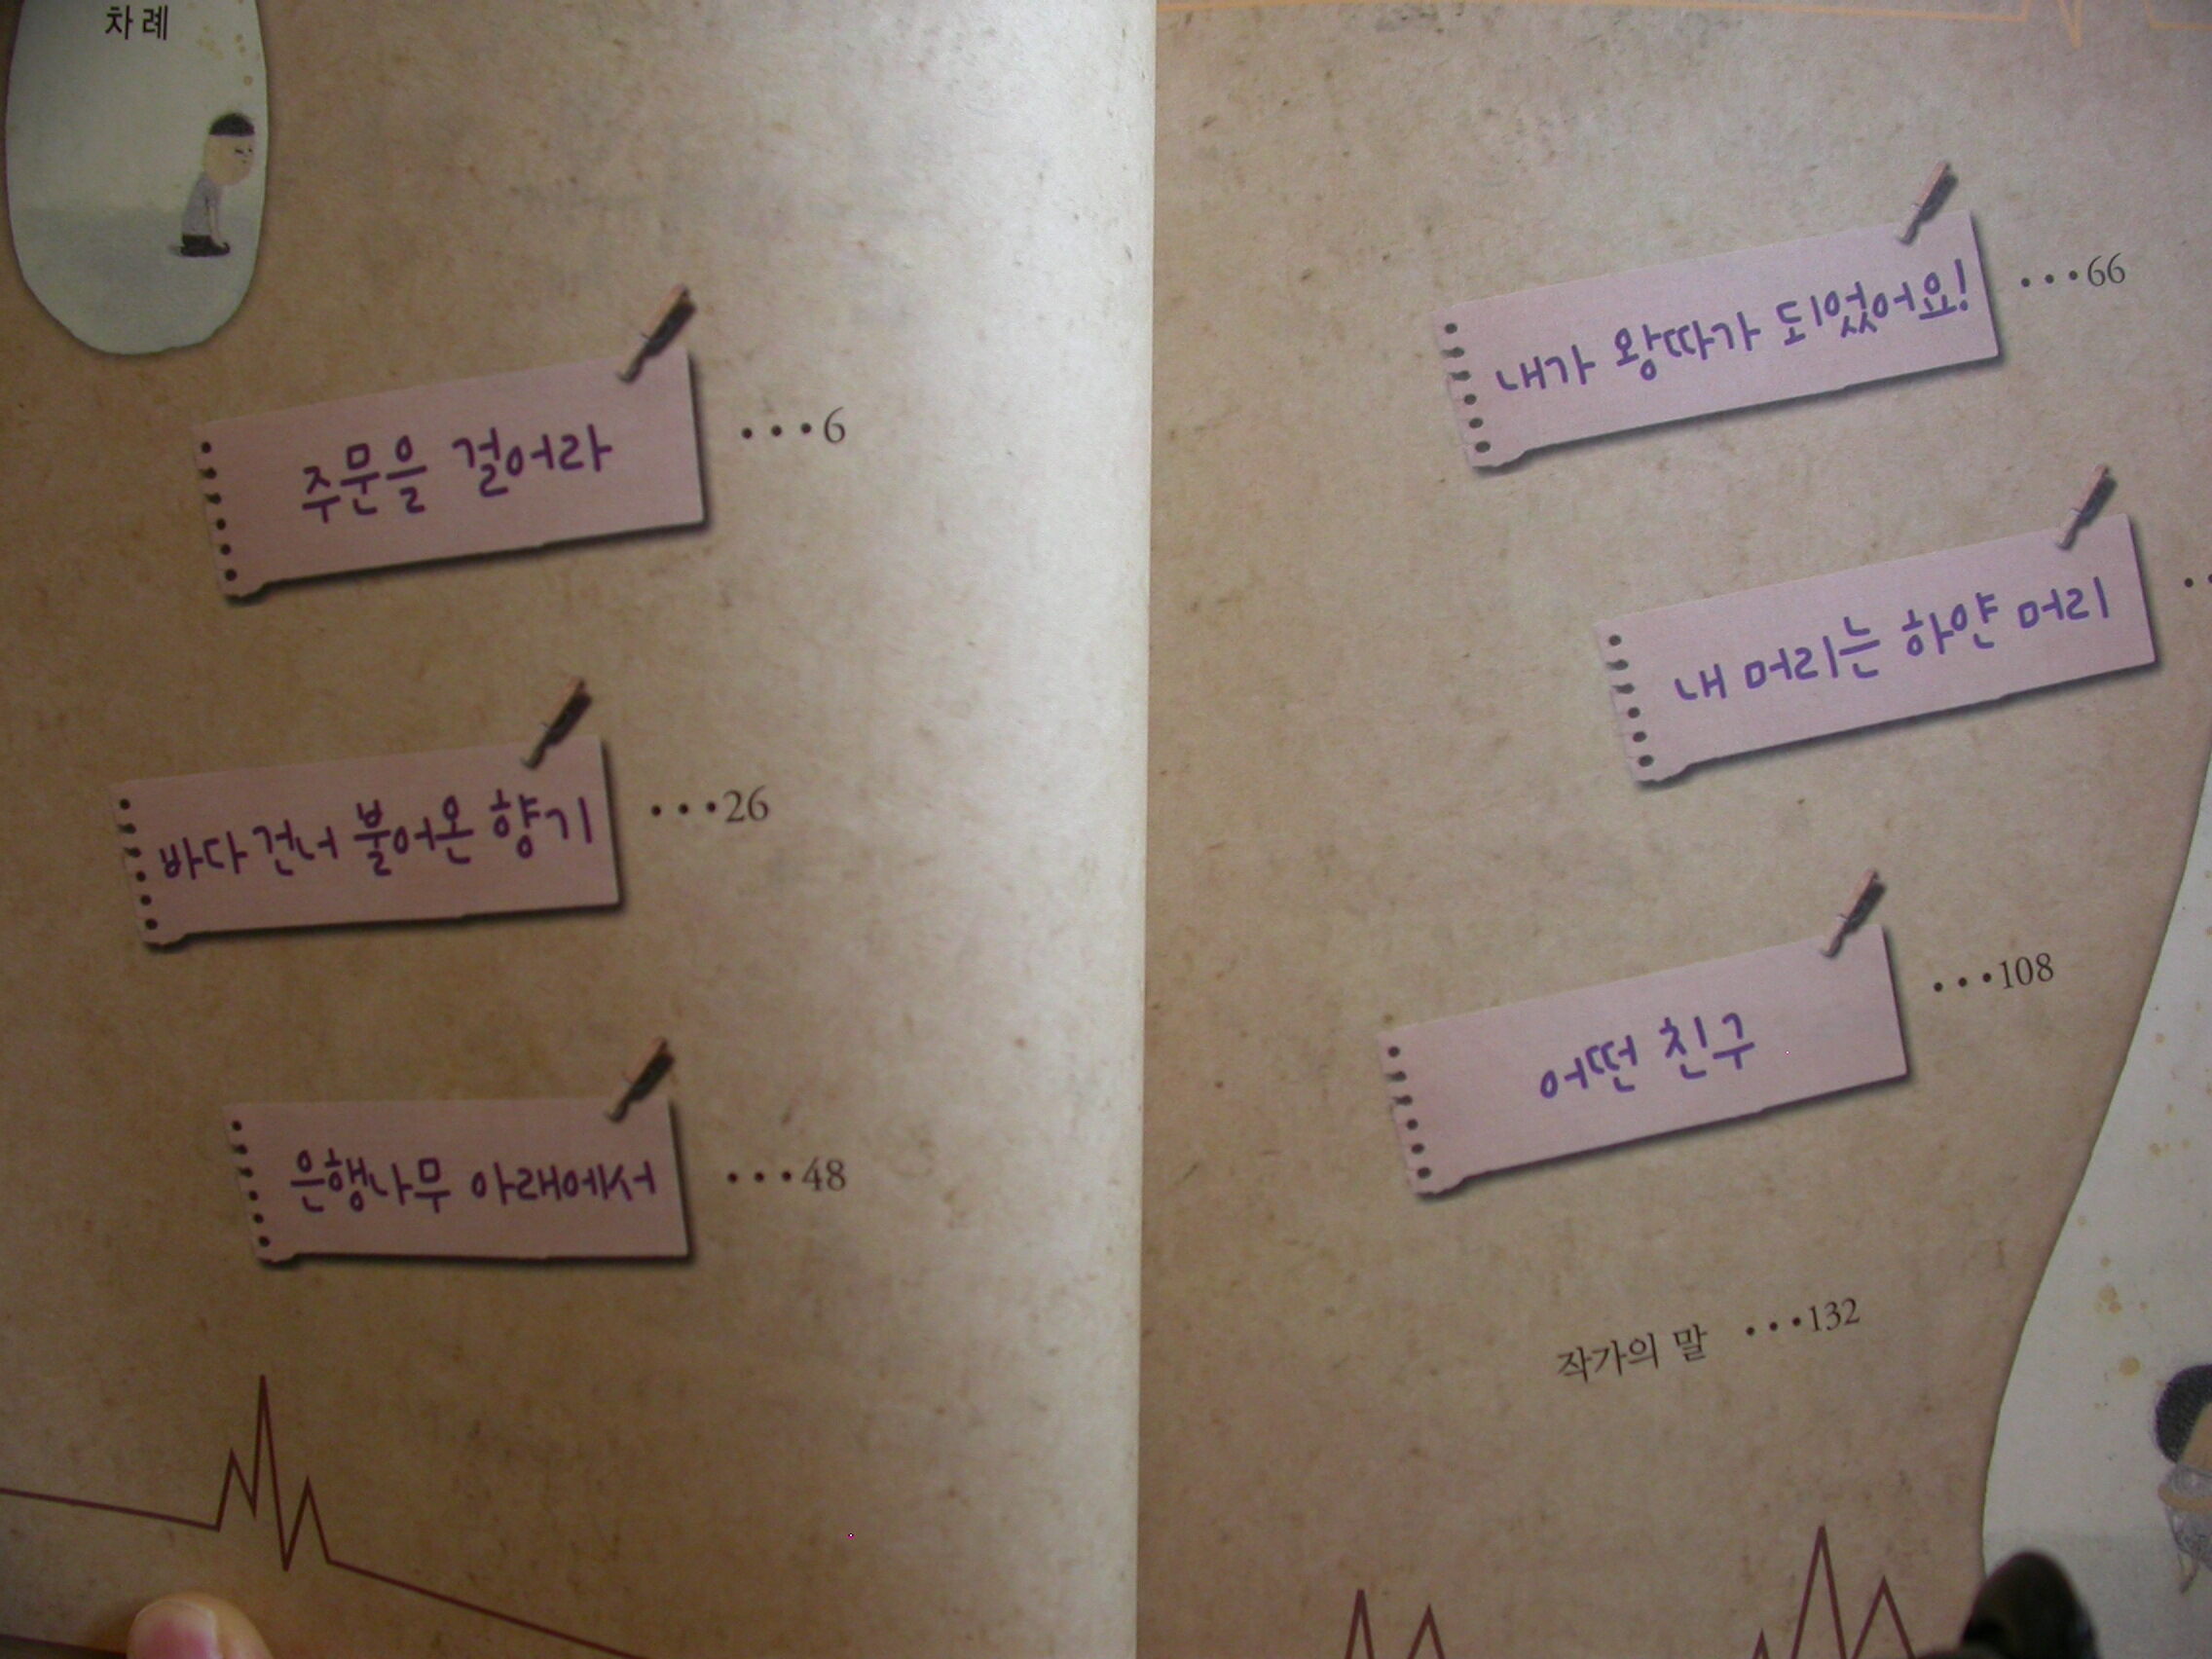 차례
주문을 걸어라 ···6
바다 건너 불어온 향기 ···26
은행나무 아래에서 ···48
내가 왕따가 되었어요! ···66
내 머리는 하얀 머리 ··
어떤 친구 ···108
작가의 말 ···132